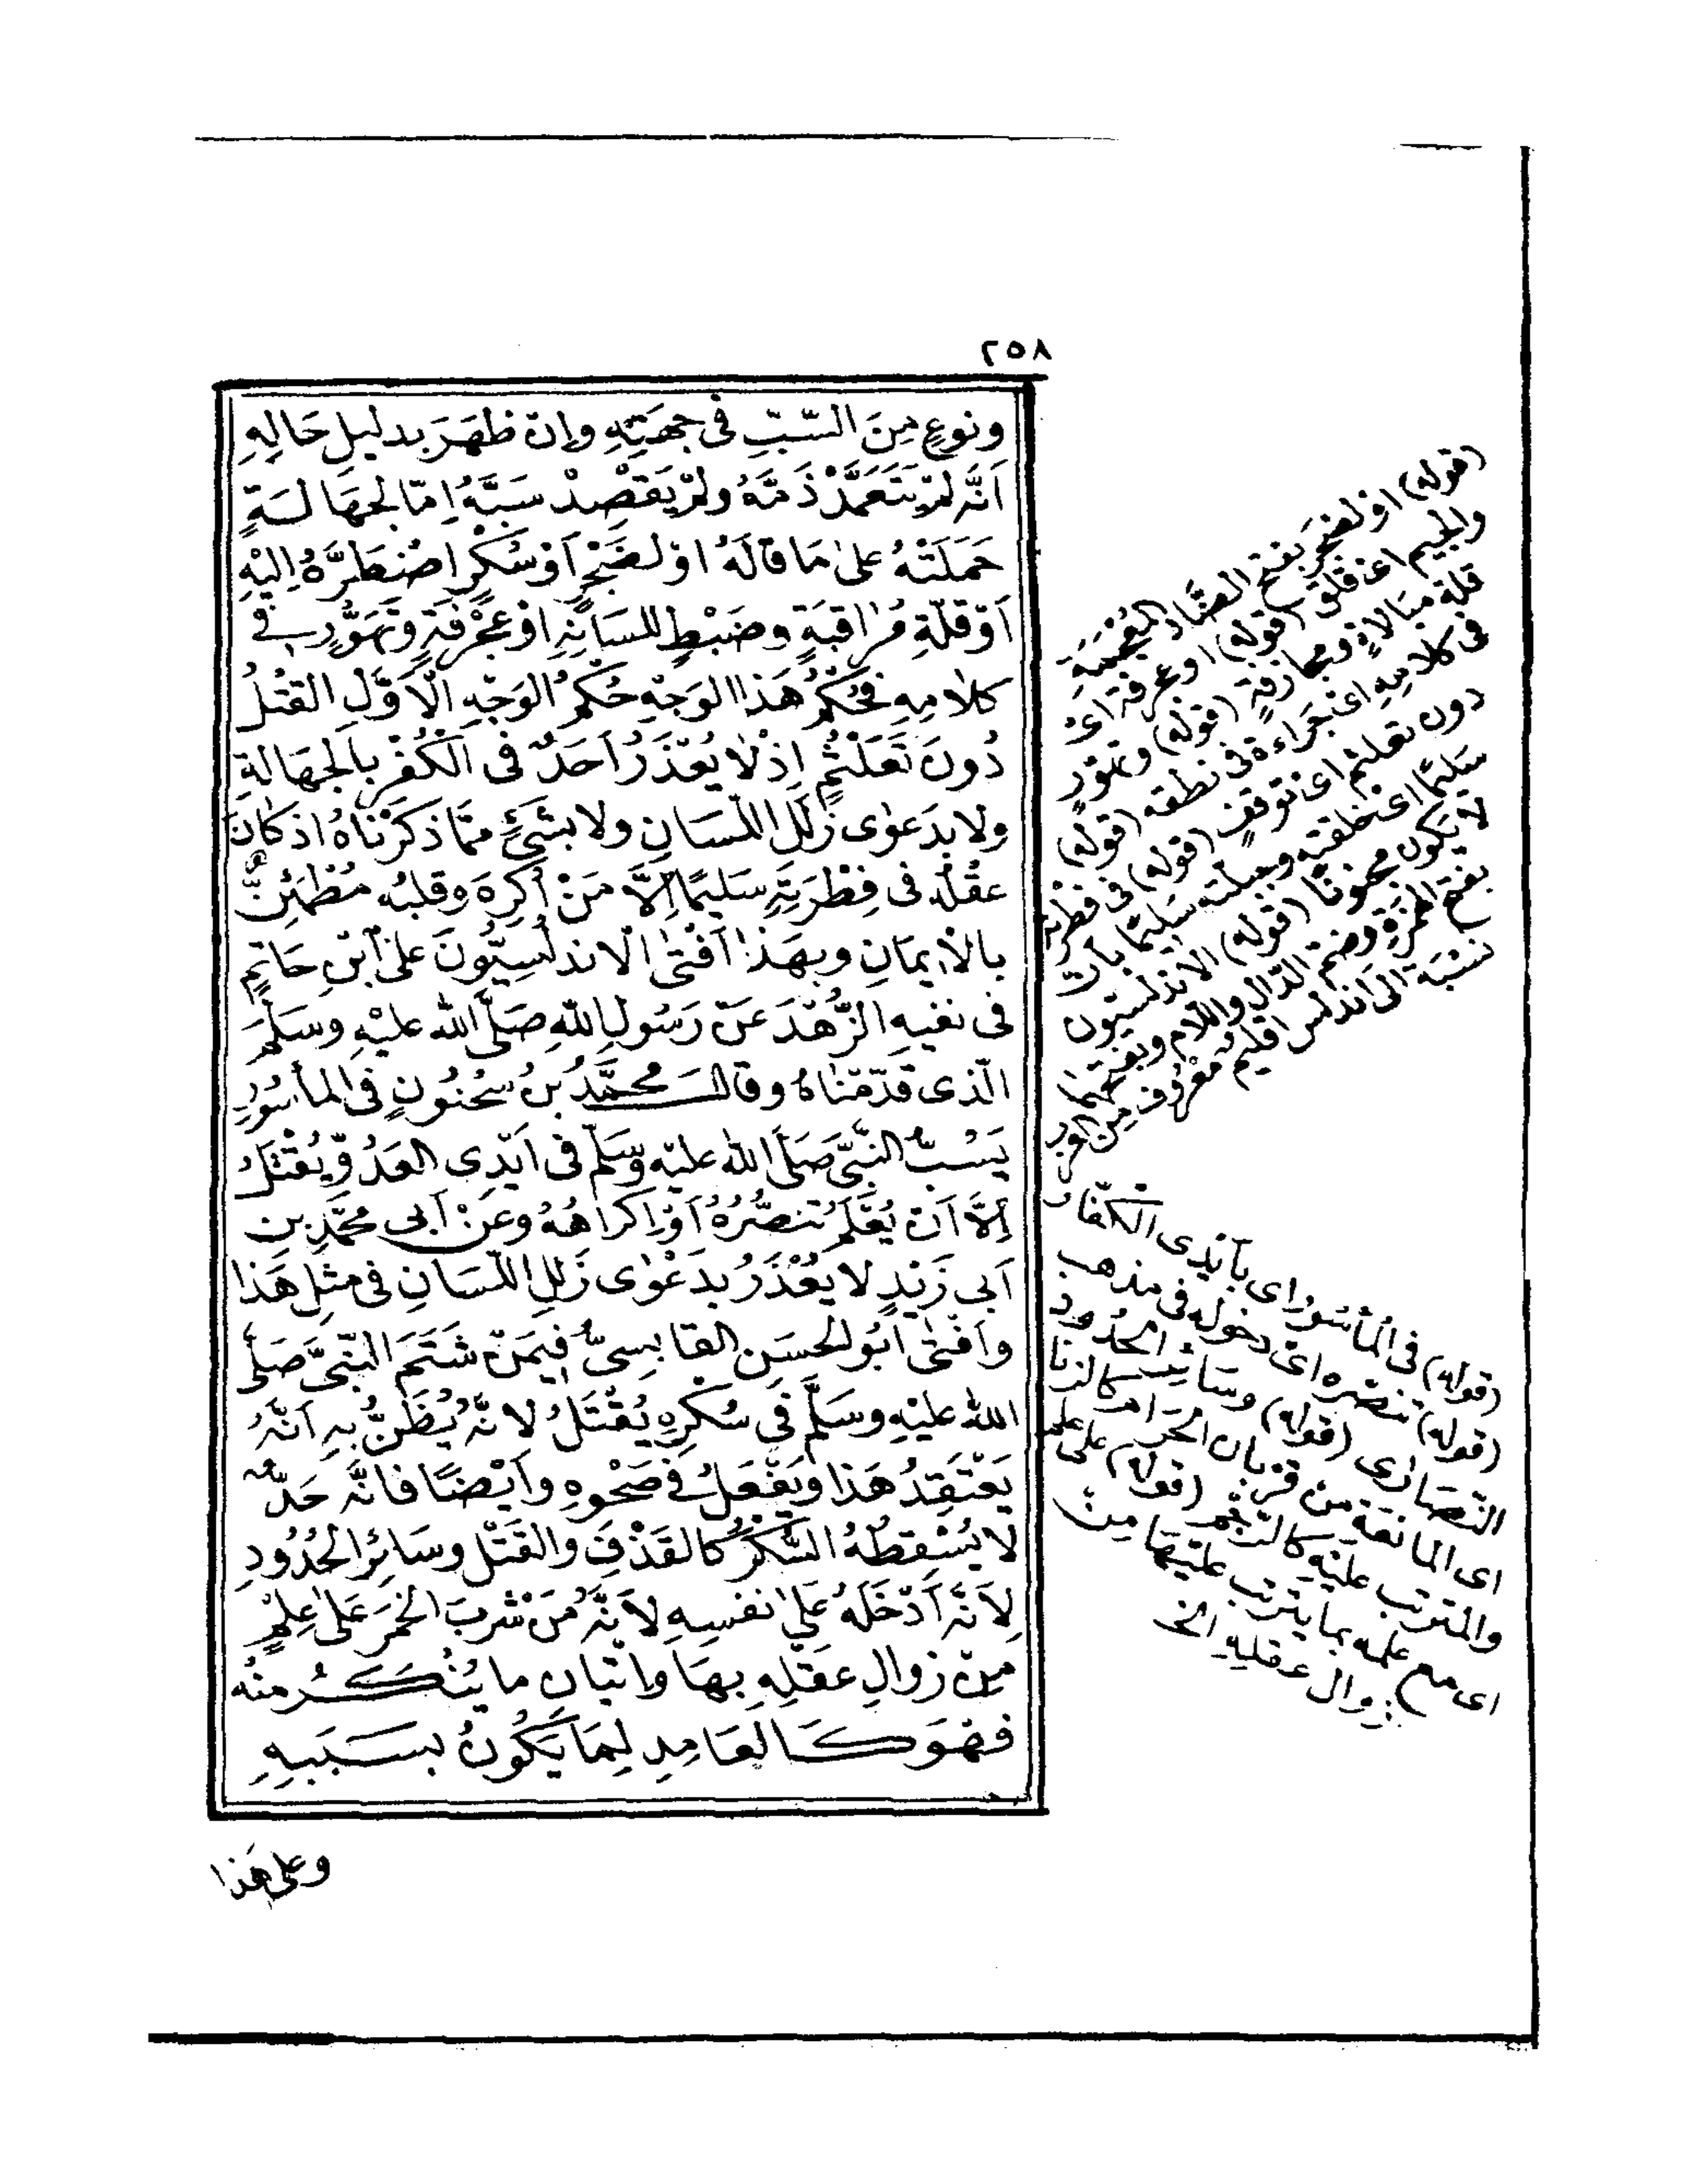 ٢٥٨
ونوعٍ مِنَ السَّبِّ فى جِهَتِهِ وإن ظَهَرَ بدليلِ حَالِهِ
أنَّه لمْ يَتَعَمَّدْ ذَمَّهُ ولمْ يَقْصِدْ سَبَّهُ اِمّا لجهَالَةٍ
حَمَلَتْهُ على مَا قالَهُ اوْ لضَجَرٍ اَوْ سُكْرٍ اضْطَرَّهُ اِليْهِ
اَوْ قلّةِ مُرَاقبَةٍ وضَبْطٍ للسَانِهِ اوْ عَجْرَفَةٍ وتَهَوُّرٍ فى
كلامِهِ فحُكْمُ هَذا الوَجْهِ حُكمُ الوَجْهِ الْاَوَّلِ القتْلُ
دُونَ تَلَعْثُمٍ اِذْ لا يُعْذَرُ اَحَدٌ فى الكُفْرِ بالجَهَالةِ
ولا بدَعوٰى زَلَلِ اللّسَانِ ولا بشَئٍ ممّا ذكَرْنَاهُ اذ كانَ
عقْلُهُ فى فِطْرَتِهِ سَليمًا اِلاَّ مَنْ أُكرِهَ وقلبُه مُطْمَئِنٌّ
بالْاِيمَانِ وبهَذا اَفْتٰى الْاندلُسِيُّونَ علىٰ ابْنِ حَاتِمٍ
فى نفيِهِ الزُّهْدَ عَنْ رَسُولِ اللهِ صَلَّى الله عليْهِ وسَلَّمَ
الّذى قدّمْنَاهُ وقالَ محمَّدُ بنُ سُحْنُونٍ فى المأسُورِ
يَسُبُّ النَّبىَّ صَلَّى الله عليْه وسَلّم فى اَيْدِى العَدُوِّ يُقْتَلُ
اِلاَّ اَنْ يُعْلَمَ تَنَصُّرُهُ اَوْ اِكراهُهُ وعَنْ اَبى محمَّدِ بن
اَبى زَيْدٍ لا يُعْذَرُ بدَعْوٰى زَلَلِ اللّسَانِ فى مثلِ هَذا
واَفْتٰى ابُو الحسَنِ القابِسىُّ فيمَنْ شَتَمَ النّبىَّ صَلَّى
اللهُ عليْهِ وسَلَّمَ فى سُكرِهِ يُقْتَلُ لانَّهُ يُظَنُّ بِهِ اَنَّهُ
يَعْتَقِدُ هَذا ويَفْعَلُهُ فى صَحْوِهِ واَيْضًا فانَّهُ حَدٌّ
لا يُسْقِطُهُ السُّكْرُ كالقَذْفِ والقَتْلِ وسَائِرِ الحُدُودِ
لِاَنَّهُ اَدْخَلَهُ عَلىٰ نفسِهِ لاَنَّ مَنْ شَرِبَ الخمرَ عَلىٰ عِلْمٍ
مِنْ زوالِ عقلِهِ بهَا واتيانِ ما يُنْكَرُ منْه
فهُوَ كَالعَامِدِ لِمَا يَكُونُ بسَبَبِهِ
وعلى هَذا
(قوله) اوْ لضجَر بفتح الضّاد المُعْجَمَةِ
والجيم اىْ قلق (قوله) اوعجرفة اىْ
قلة مبَالاةٍ ومجازفةٍ (قوله) وتهوّرٍ
فى كلامِهِ اىْ جَراءة فى نطقه (قوله)
دون تلعثم اى توقف (قوله) فى فطرته
سَليمًا اىْ خلقته وجبلته سَليمًا بان
لا يَكون مجنونًا (قوله) الاندلسيّون
بفتح الهمزة وضمّ الدّال واللام وبفتحهما
نسْبَة الى اندلس اقليم معْرُوف من الغرب
(قوله) فى المأسُور اى بأيْدى الكفّار
(قوله) تنصّره اىْ دخوله فى مذهب
النّصَارى (قوله) وسَائر الحُدود
اى المانعَة من قربان الحَرام كالزنا
والمترتب عليْهِ كالرّجْم (قوله) على علم
اى مع علمه بما يترتب عليْهَا مِنْ
زوال عقلِهِ الخ